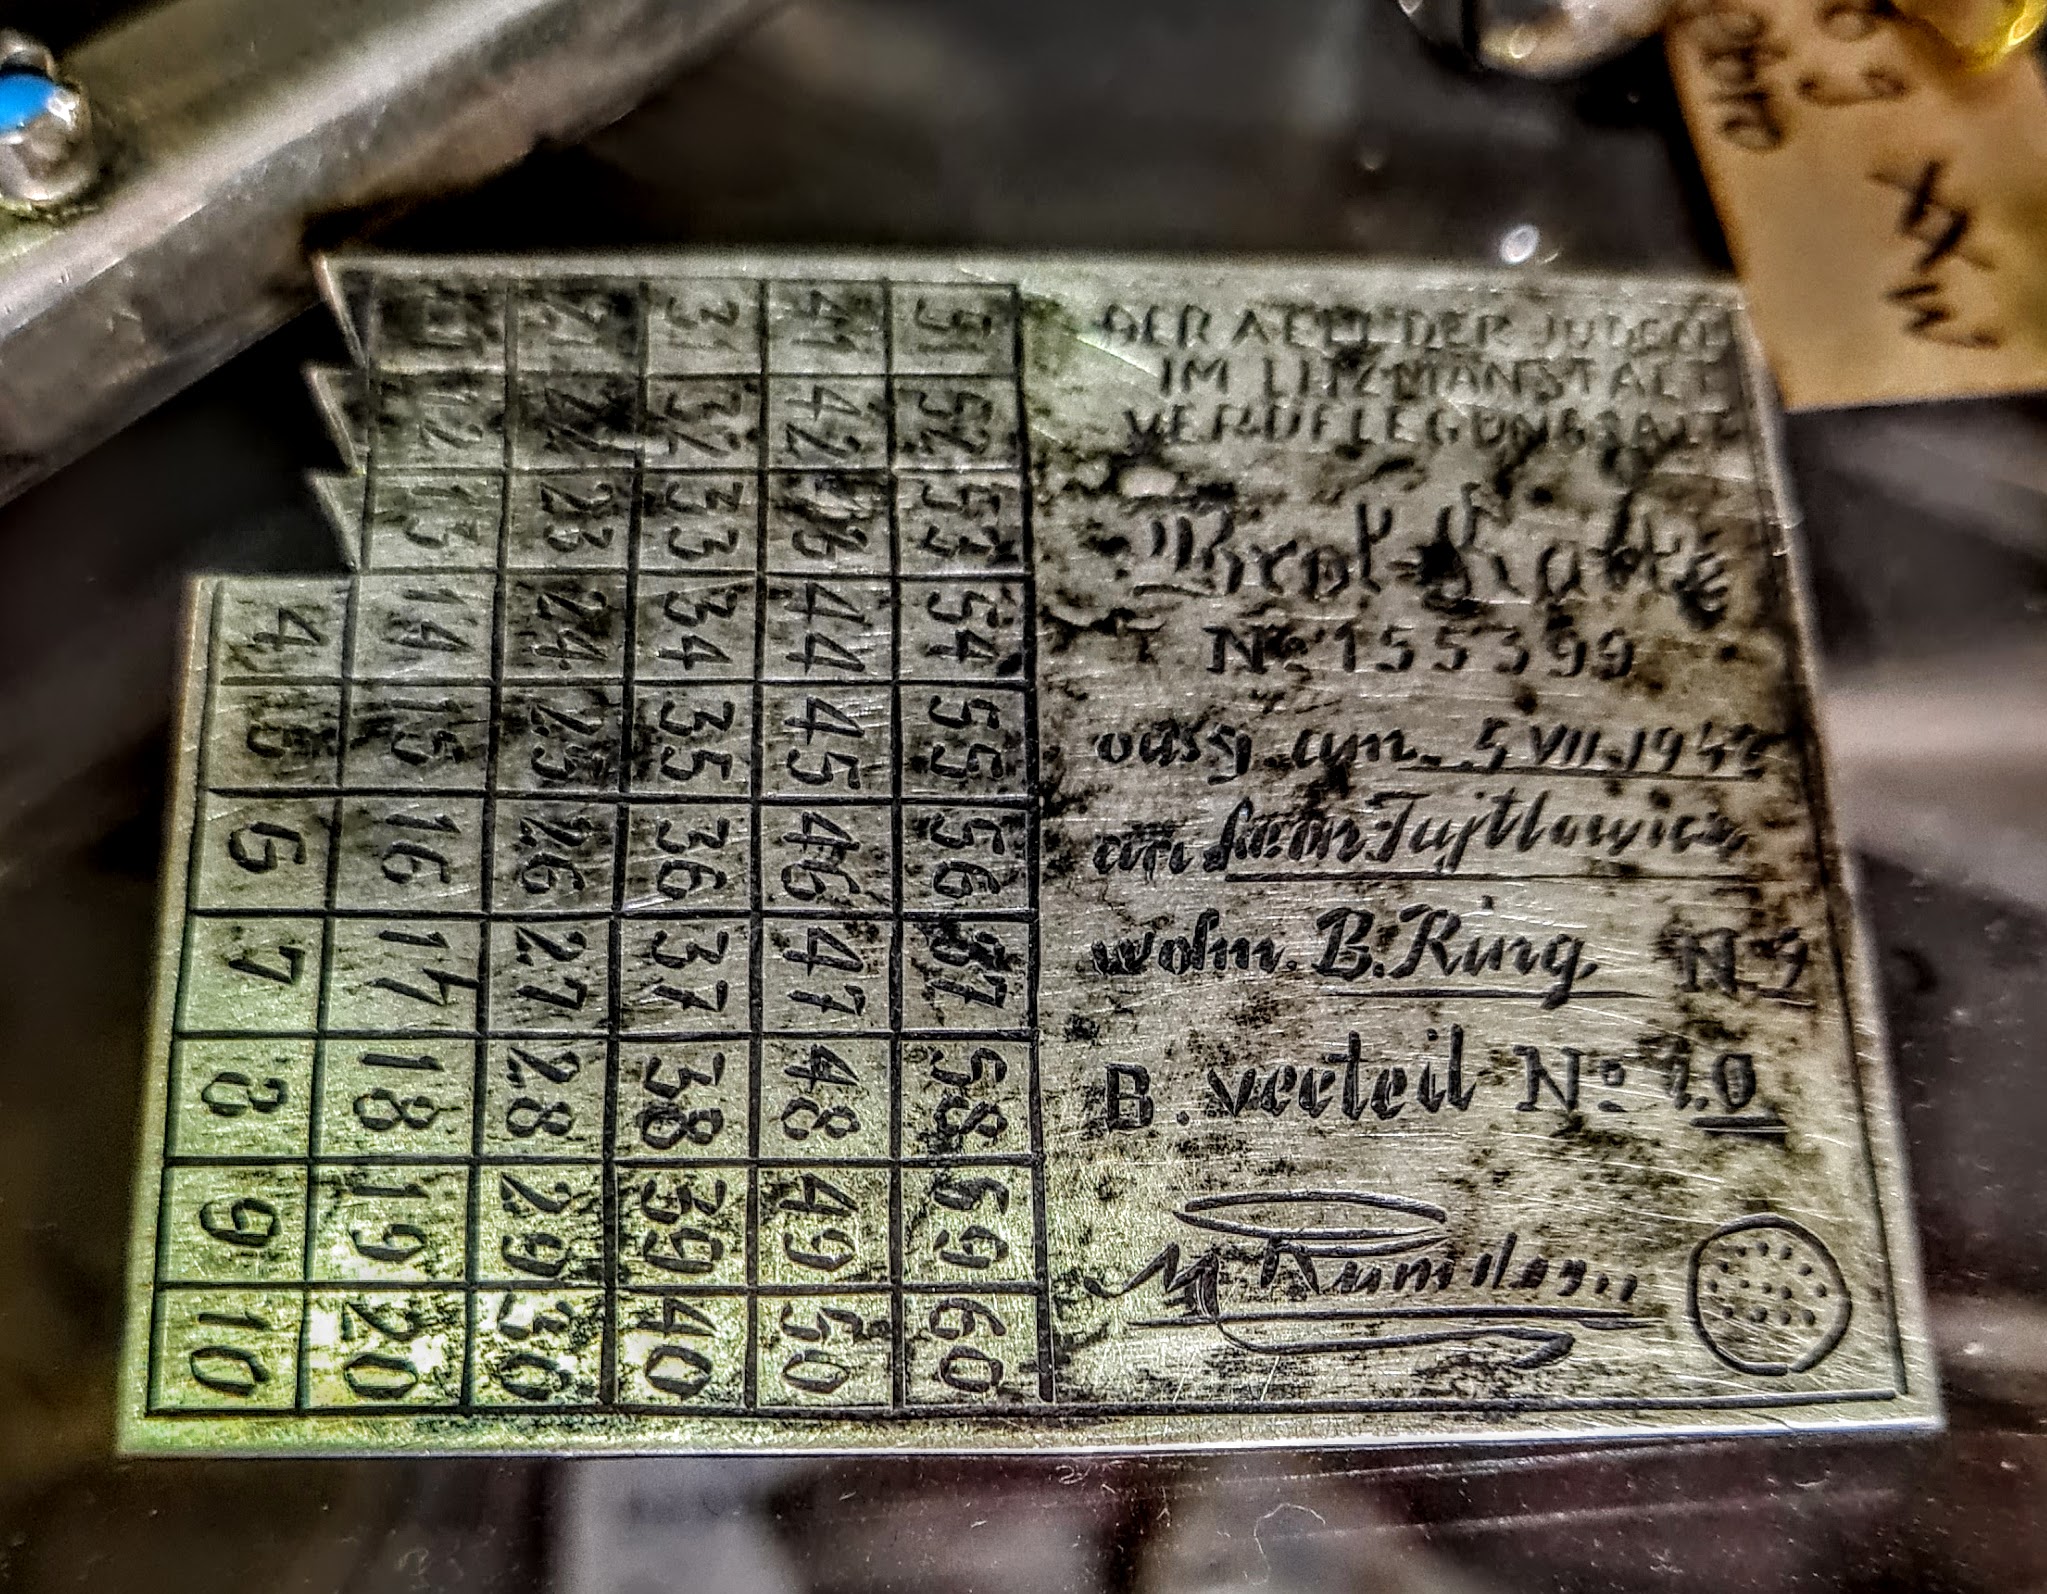 DER AELT DER JUDEN
IM LITZMANSTATT
Brot-Karte
No 155399
ausg. am 5 VII.1942
an Leon Tujtlowicz
wohn. B. Ring, N 9
B. verteil No 10
4 5 6 7 8 9 10
11 12 13 14 15 16 17 18 19 20
21 22 23 24 25 26 27 28 29 30
31 32 33 34 35 36 37 38 39 40
41 42 43 44 45 46 47 48 49 50
51 52 53 54 55 56 57 58 59 60